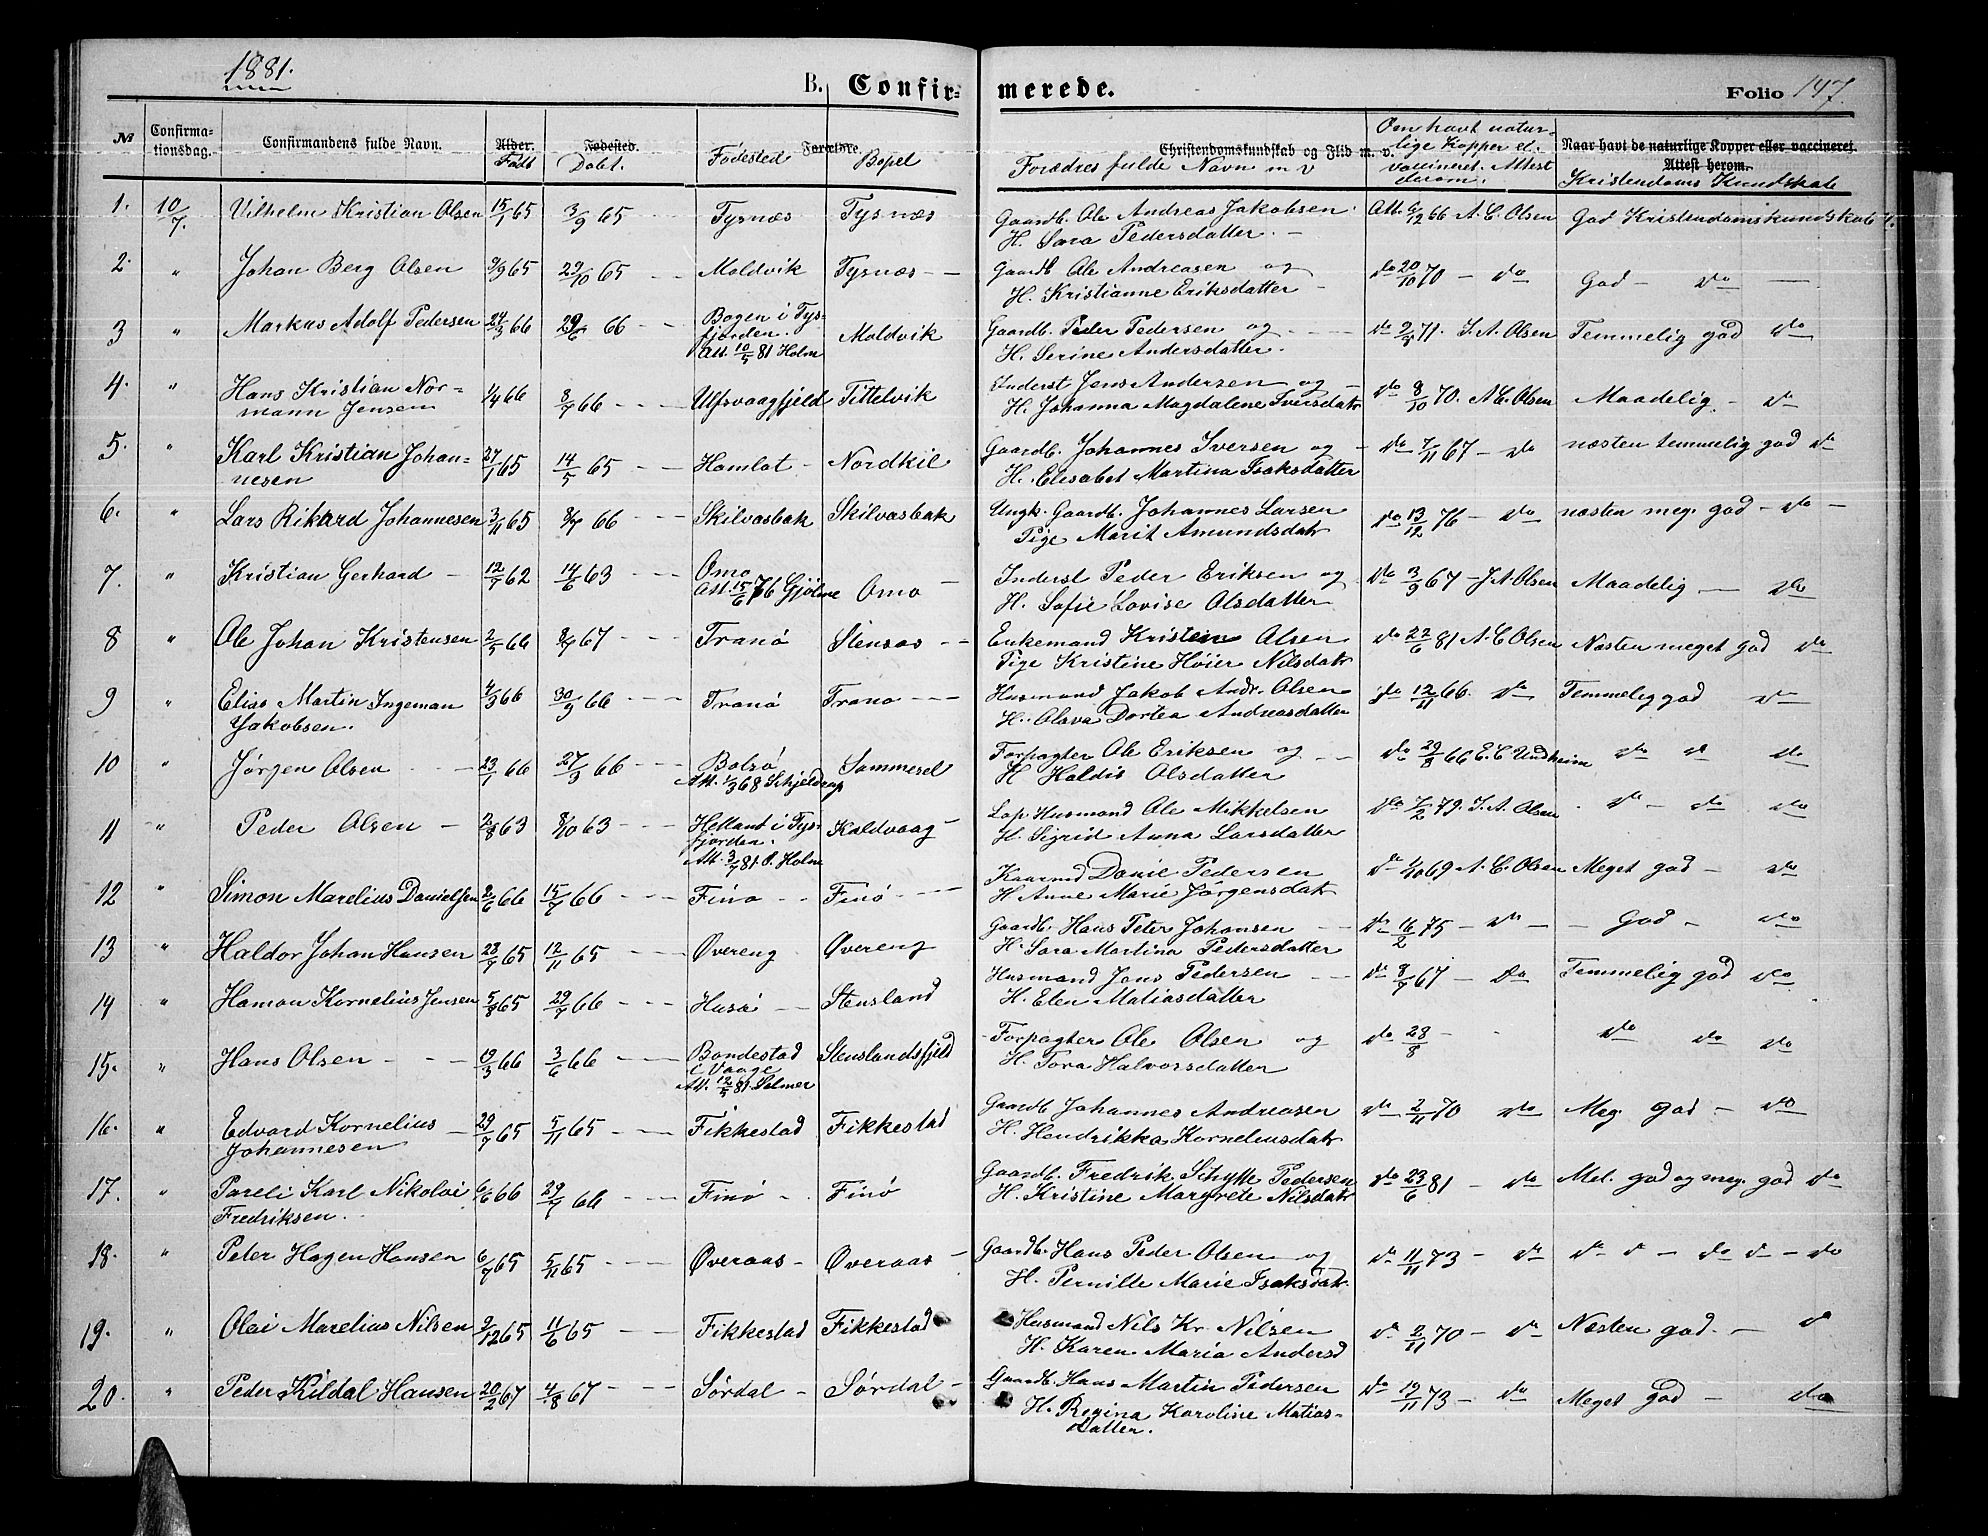 1881.
B. Confir=
merede.
Folio 147.
№
Confirma=
tionsdag.
Confirmandens fulde Navn.
Alder.
Født
Fødested.
Døbt.
Forældre.
Fødested
Bopel
Christendomskundskab og Flid m. v.
Forædres fulde Navn m v
Om havt natur-
lige Kopper el.
vaccineret. Attest
derom.
Naar havt de naturlige Kopper eller vaccineret.
Attest herom.
Kristendoms Kundskab
1. 10/7. Vilhelm Kristian Olsen 15/7 65 3/9 65 — — Tysnæs Tysnæs Gaardb. Ole Andreas Jakobsen Att. 6/12 66 A. C. Olsen God Kristendomskundskab
H. Sara Pedersdatter. —
2. " Johan Berg Olsen 9/9 65 29/10 65 — — Moldvik Tysnæs — — Gaardb Ole Andreasen og do 20/10 70 — do God — do —
H. Kristianne Eriksdatter —
3 " Markus Adolf Pedersen 24/3 66 29/6 66 — — Bogen i Tys=
fjorden.
Att. 10/5 81 Holm
Moldvik Gaardb. Peder Pedersen og — — do 2/7 71. J. A. Olsen Temmelig god do
H. Serine Andersdatter.
4. " Hans Kristian Nor=
mann Jensen 1/4 66 8/7 66 — — Ulfsvaagfjeld Tittelvik Inderst Jens Andersen og — do 8/10 70. A C. Olsen Maadelig — do
H. Johanna Magdalene Iversdatr
5. " Karl Kristian Johan=
nesen 27/1 65 14/5 65 — — Hamlot — Nordkil Gaardb. Johannes Iversen og — do 7/11 67 — do næsten temmelig god do
H. Elisabet Martina Isaksdatter
6. " Lars Rikard Johannesen 3/11 65 8/7 66 — — Skilvasbak Skilvasbak Ungk. Gaardb. Johannes Larsen do 13/12 76 — do næsten meg. god — do —
Pige Marit Amundsdatr
7. " Kristian Gerhard — 12/7 62 14/6 63 — — Omo
Att. 15/6 76 Gjölme Omo — Inderst Peder Eriksen og do 3/9 67 — J. A. Olsen Maadelig — do
H. Sofie Lovise Olsdatter
8 " Ole Johan Kristensen 2/5 66 8/7 67 — — Tranö Stensas — — Enkemand Kristen Olsen do 22/6 81 A. C. Olsen Næsten meget god do
Pige Kristine Höier Nilsdatr
9 " Elias Martin Ingeman
Jakobsen. 4/3 66 30/9 66 — — Tranö Trano — — Husmand Jakob Andr. Olsen do 12/11 66. do Temmelig god do
H. Olava Dortea Andreasdatter
10 " Jørgen Olsen — — 23/7 66 27/9 66 — — Bolsö
Att. 1/3 68 Schjeldrup Sommersel Forpagter Ole Eriksen og — do 29/8 66 E. C Undheim do do do
H Haldis Olsdatter
11 " Peder Olsen — 2/8 63 8/10 63 — — Helland i Tys=
fjorden.
Att. 3/7 81. P. Holm Kaldvaag — Lap. Husmand Ole Mikkelsen do 7/2 79. J. A. Olsen do — do do
H. Sigrid Anna Larsdatter
12 " Simon Marelius Danielsen 2/6 66 15/7 66 — — Fino — — Finö — — Daniel Pedersen do 69 A. C. Olsen Meget god — do
H Anne Marie Jörgensdatr
13 " Haldor Johan Hansen 28/9 65 12/11 65 — — Øvereng Øvereng Gaardb. Hans Peter Johansen do 16/2 75 — do — — God — do
H. Sara Martina Pedersdatter
14 " Hamon Kornelius Jensen 5/8 65 29/7 66 — — Husö — — Stensland Husmand Jens Pedersen — do 8/7 67 — do Temmelig god do
H. Elen Matiasdatter
15. " Hans Olsen — — 19/3 66 3/6 66 — — Bondestad
i Vaage
Att. 12/5 81 Selmer Stenslandsfjeld — Forpagter Ole Olsen og do 28/8 — — do do do
H. Tora Halvorsdatter
16. " Edvard Kornelius —
Johannesen 29/7 65 5/11 65 — — Fikkestad Fikkestad Gaardb. Johannes Andreasen do 2/11 70 do Meg. god — do
H. Hendrikka Korneliusdatr
17. " Pareli Karl Nikolai
Fredriksen. 6/6 66 29/7 66 Finö — Finö Gaardb. Fredrik Schytte Pedersen do 23/6 81 — do Mel. god og meg. god do
H. Kristine Margrete Nilsdatr
18. " Peter Hagen Hansen 6/7 65 5/11 65 — — Øveraas — Øveraas — Gaardb. Hans Peder Olsen og do 11/11 73 — do do d — do d — do
H. Pernille Marie Isaksdatr.
19. " Olai Marelius Nilsen 9/12 65 11/6 65 — — Fikkestad Fikkestad Husmand Nils Kr. Nilsen do 2/11 70 — do Næsten god. — d
H. Karen Maria Andersd
20. " Peder Kildal Hansen 20/2 67 4/8 67 — — Sørdal — Sørdal — Gaardb. Hans Martin Pedersen do 19/11 73 — do Meget God — do
H. Regina Karoline Matias=
datter.